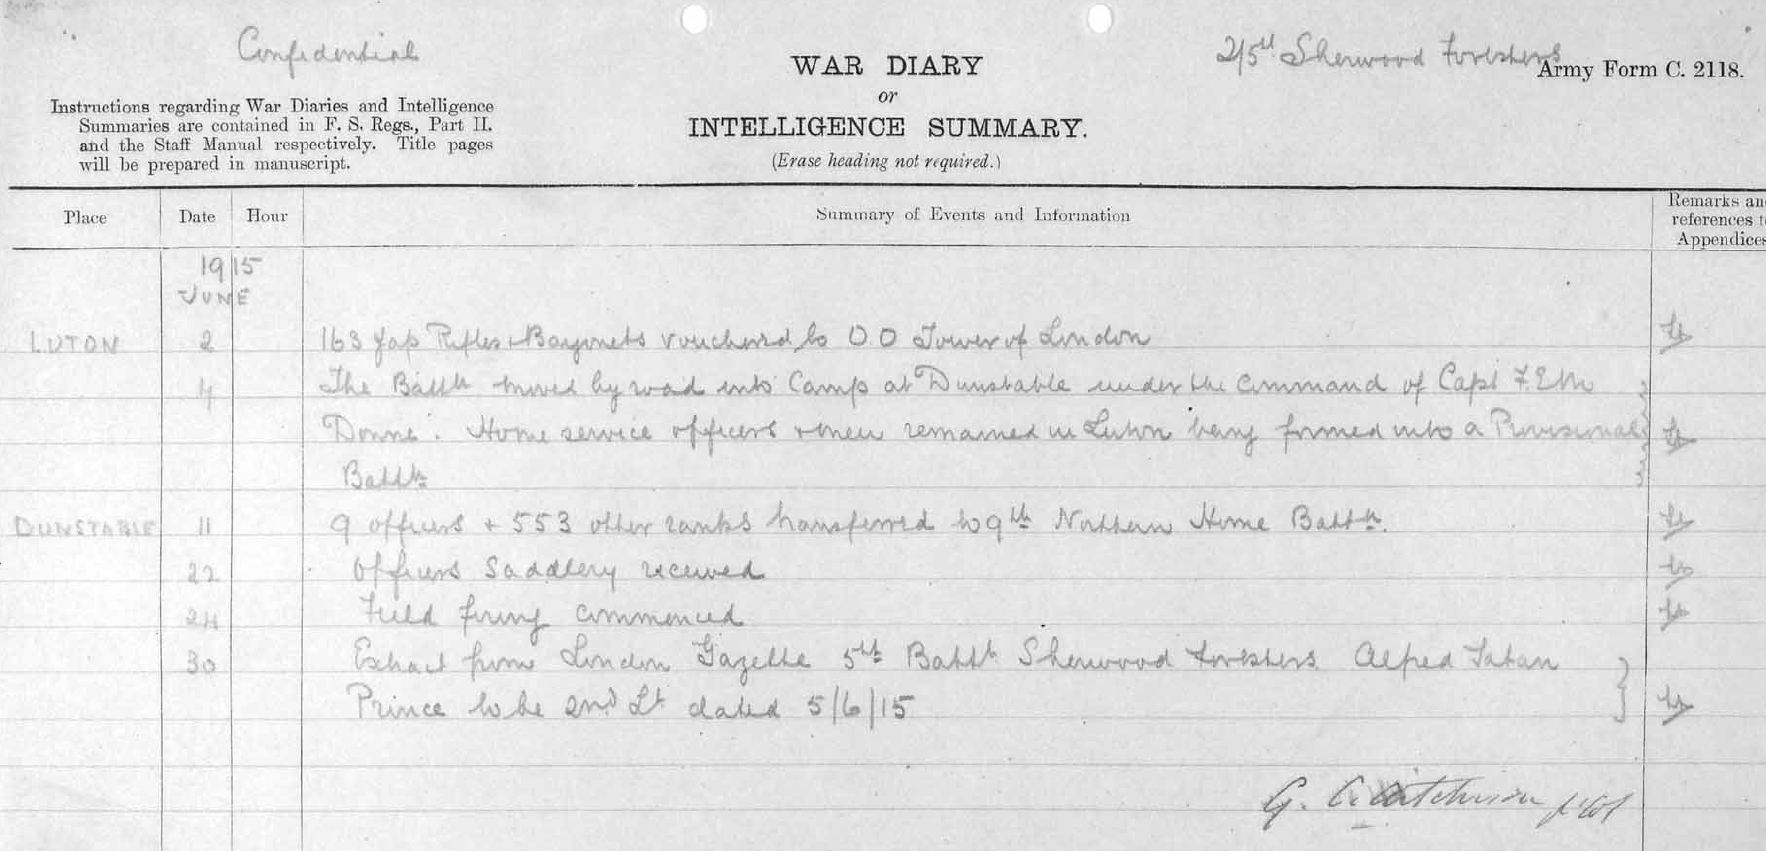 Confidential
2/5th Sherwood Foresters
Army Form C. 2118.
WAR DIARY
or
INTELLIGENCE SUMMARY.
(Erase heading not required.)
Instructions regarding War Diaries and Intelligence
Summaries are contained in F. S. Regs., Part II.
and the Staff Manual respectively. Title pages
will be prepared in manuscript.
Place Date Hour Summary of Events and Information Remarks and
references to
Appendices
1915
JUNE
LUTON 2 163 Jap Rifles & Bayonets vouchered to O O Tower of London
4 The Battn moved by road into Camp at Dunstable under the command of Capt F.E.M.
Donne. Home service officers & men remained in Luton being formed into a Provisional
Battn
DUNSTABLE 11 9 officers & 553 other ranks transferred to 9th Northern Home Battn.
22 Officers Saddlery received
24 Field firing commenced
30 Extract from London Gazette 5th Battn Sherwood Foresters. Alfred Tatan
Prince to be 2nd Lt dated 5/6/15
G.